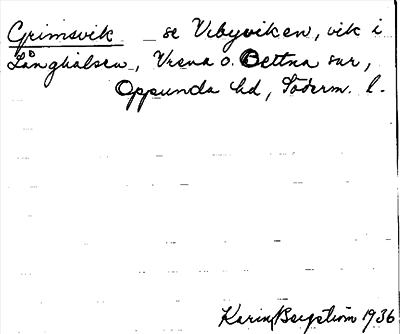 Grimsvik _ se Vrbyviken, vik i
Långhalsen, Vrena o. Bettna snr,
Oppunda hd, Söderm. l.
Karin Bergström 1936